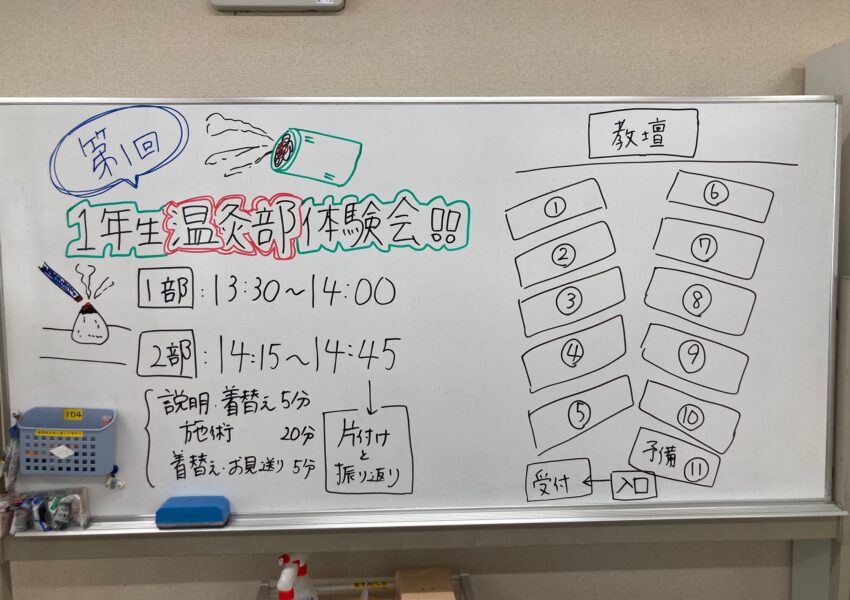 第1回
1年生温灸部体験会!!
1部:13:30〜14:00
2部:14:15〜14:45
説明・着替え 5分
施術 20分
着替え・お見送り 5分
片付け
と
振り返り
教壇
①
②
③
④
⑤
⑥
⑦
⑧
⑨
⑩
予備
⑪
受付
入口
104